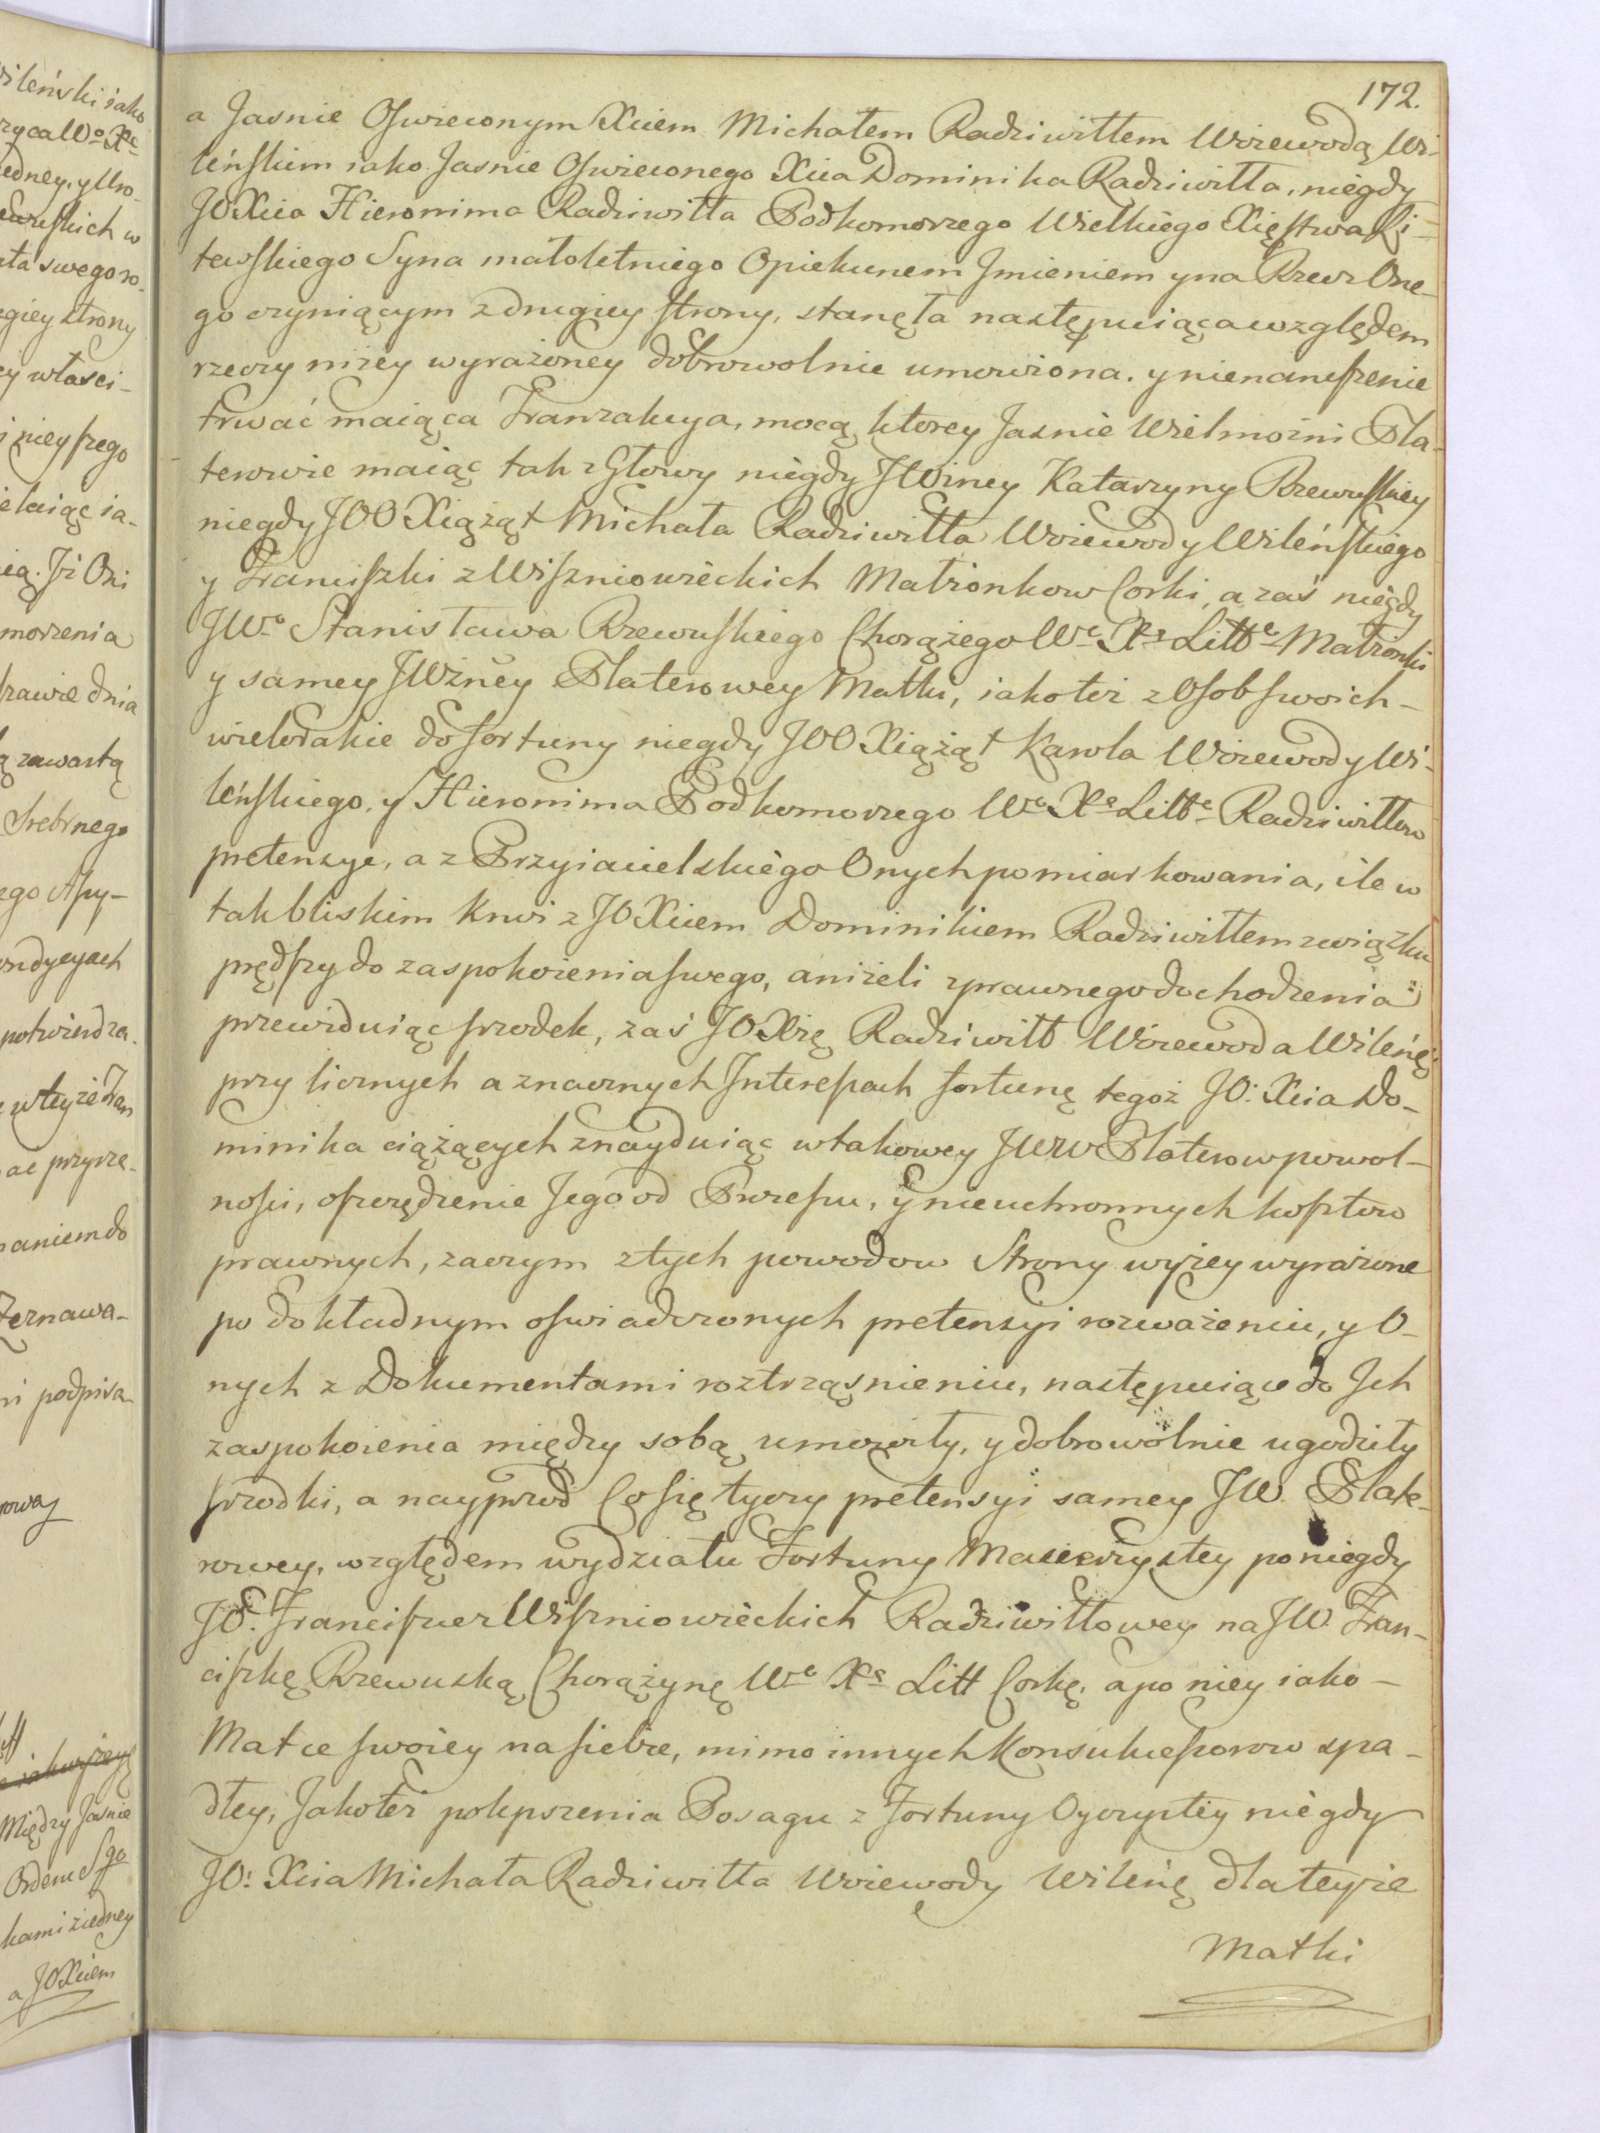 172.
a Jasnie Oswieconym Xciem Michałem Radziwiłłem Woiewodą Wi-
leńskim iako Jasnie Oswieconego Xcia Dominika Radziwiłła, niegdy
JO Xcia Hieronima Radziwiłła Podkomorzego Wielkiego Xięstwa Li-
tewskiego Syna małoletniego Opiekunem Jmieniem y na Rzecz One-
go czyniącym z drugiey strony, stanęła następuiąca względem
rzeczy niżey wyrażoney dobrowolnie umowiona. y nienaruszenie
trwać maiąca Tranzakcya, mocą ktorey Jasnie Wielmożni Pla-
terowie maiąc tak z Głowy niegdy JWżney Katarzyny Rzewuskiey
niegdy JOO Xiążąt Michała Radziwiłła Woiewody Wileńskiego
y Franciszki z Wiszniowieckich Małżonkow Corki, a zaś niegdy
JWo Stanisława Rzewuskiego Chorążego Wo Xa Litto Małżonki
y samey JWżney Platerowey Matki, iako też z Osob swoich-
wielorakie do fortuny niegdy JOO Xiążąt Karola Woiewody Wi-
leńskiego, y Hieronima Podkomorzego Wo Xa Litto Radziwiłłow
pretensye, a z Przyiacielskiego Onych pomiarkowania, ile w
tak bliskim krwi z JO Xciem Dominikiem Radziwiłłem związku
prędszy do zaspokoienia swego, aniżeli z prawnego dochodzenia
przewiduiąc srzodek, zaś JO Xżę Radziwiłł Woiewoda Wileńę
przy licznych a znacznych Interesach fortunę tegoż JO: Xcia Do-
minika ciążących znayduiąc w takowey JWW Platerow powol-
nosci, oszczędzenie Jego od Processu, y nieuchronnych kosztow
prawnych, zaczym z tych powodow Strony wyżey wyrażone
po dokładnym oswiadczonych pretensyi rozważeniu, y O-
nych z Dokumentami roztrząsnieniu, następuiące do Jch
zaspokoienia między sobą umowiły, y dobrowolnie ugodziły
srzodki, a nayprzod Co się tyczy pretensyi samey JW. Plate-
rowey, względem wydziału Fortuny Macierzystey po niegdy
JO. Franciszce z Wiszniowieckich Radziwiłłowey na JW. Fran-
ciszkę Rzewuską Chorążynę Wo Xa Litt Corkę, a po niey iako-
Matce swoiey na siebie, mimo innych Konsukcessorow spa-
dłey, Jako też polepszenia Posagu z Fortuny Oyczystey niegdy
JO: Xcia Michała Radziwiłła Woiewody Wileńę dla teyże
Matki